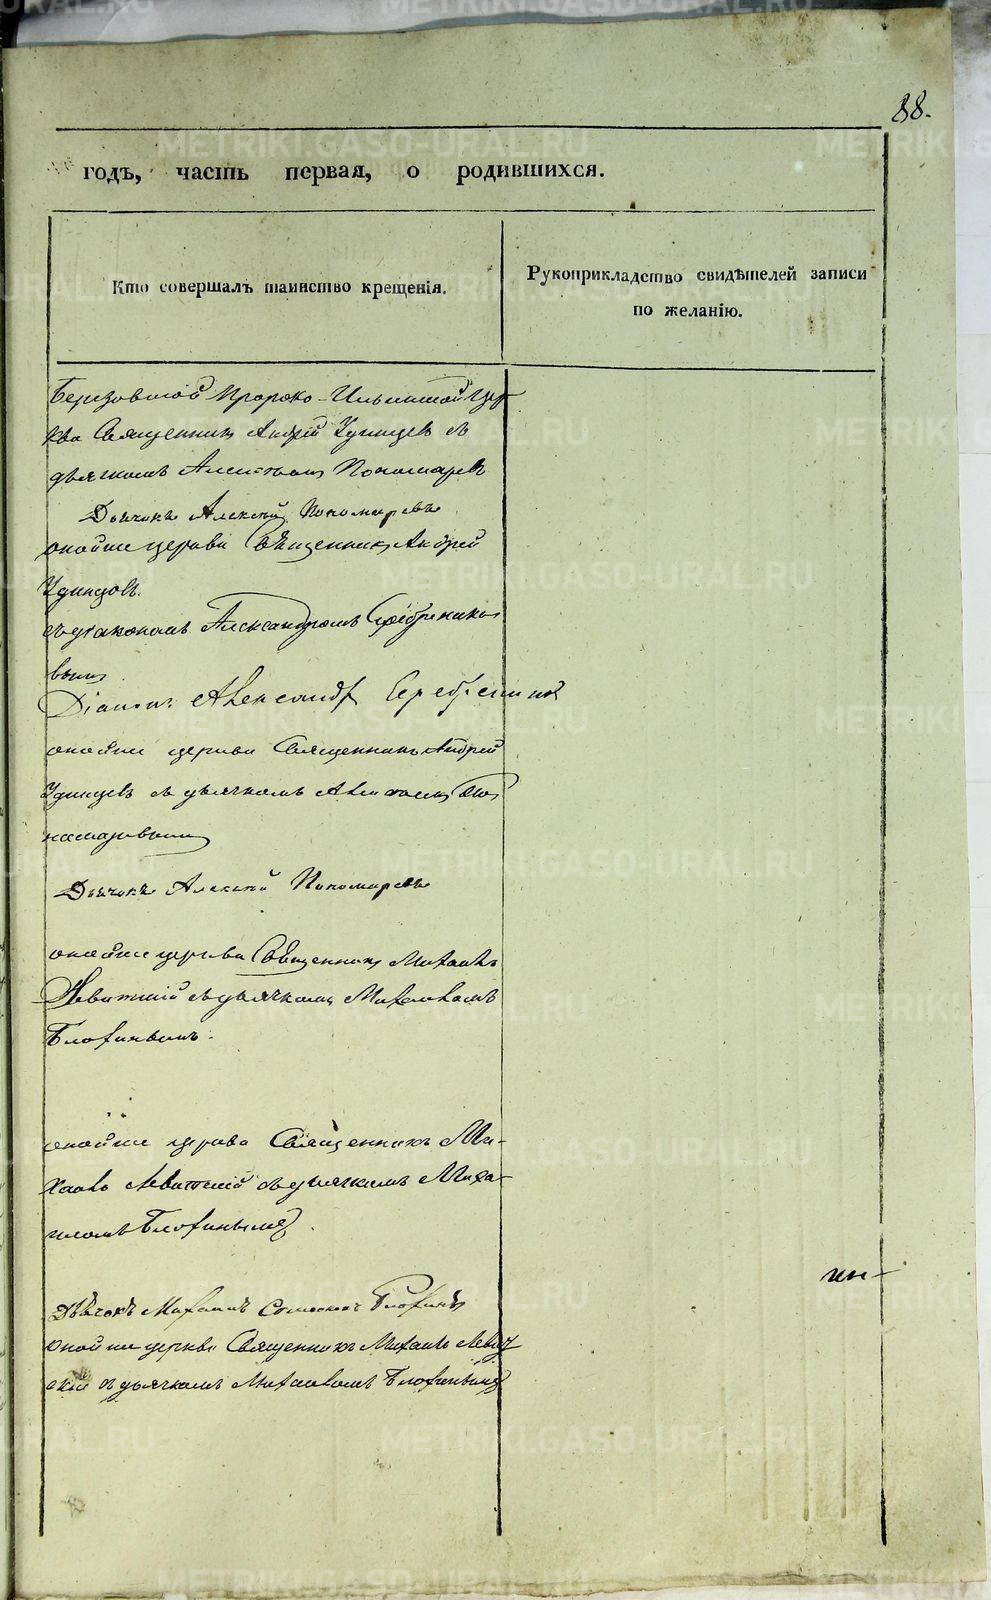 88.
годъ, часть первая, о родившихся.
Кто совершалъ таинство крещенія.
Рукоприкладство свидѣтелей записи
по желанію.
Березовской Пророко-Ильинской Цер
кви Священникъ Андрей Удинцев съ
дьячкомъ Пономарев
Дьячокъ Алексѣй Пономаревъ
оной же церкви Священникъ Андрей
Удинцовъ
съ діакономъ Александромъ Серебренико
вым
Діаконъ Александр Серебренников
оной же церкви Священникъ Андрей
Удинцев съ дьячкомъ Алексеем По
номаревым
Дьячокъ Алексѣй Пономаревъ
оной же церкви Священникъ Михаилъ
Левитский съ дьячкомъ Михаиломъ
Блохинымъ.
оной же церкви Священникъ Ми-
хаилъ Левитский съ дьячкомъ Миха-
иломъ Блохинымъ.
Дьячокъ Михаилъ Блохинъ
оной же церкви Священникъ Михаилъ Левит
ский съ дьячкомъ Михаиломъ Блохинымъ
METRIKI.GASO-URAL.RU